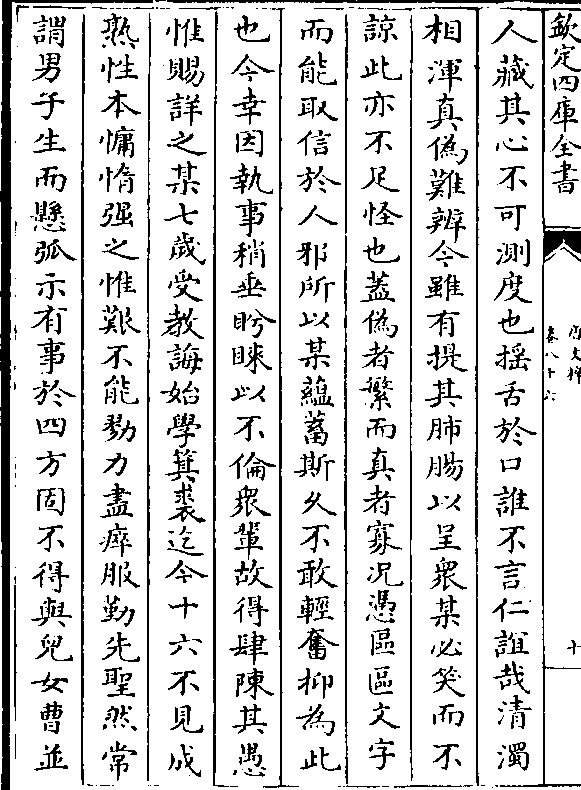 欽定四庫全書
卷八十六
十
人藏其心不可測度也揺舌於口誰不言仁誼哉清濁
相渾真偽難辨今雖有提其肺腸以呈衆某必笑而不
諒此亦不足怪也蓋偽者繁而真者寡况憑區區文字
而能取信於人邪所以某藴蓄斯久不敢輕奮抑為此
也今幸因執事稍垂盻睞以不倫衆輩故得肆陳其愚
惟賜詳之某七歲受教誨始學箕裘迄今十六不見成
熟性本慵惰强之惟艱不能勠力盡瘁服勤先聖然常
謂男子生而懸弧示有事於四方固不得與兒女曹並